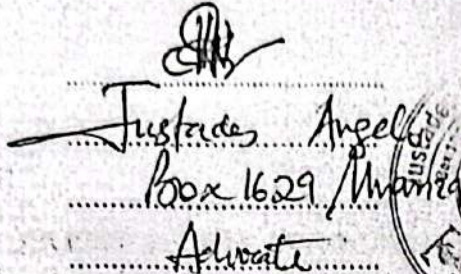 Justades Angelo
Box 1629 Mwanza
Advocate